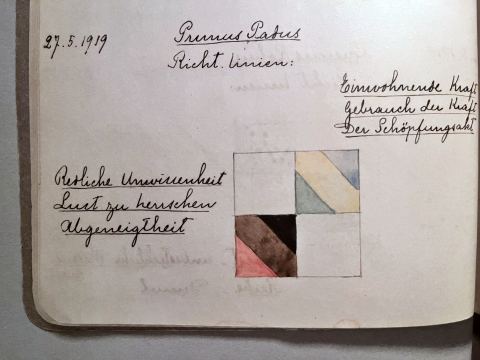 27.5.1919
Prunus Padus
Richt. Linien:
Einwohnende Kraft
Gebrauch der Kraft
Der Schöpfungsakt
Redliche Unwissenheit
Lust zu herrschen
Abgeneigtheit